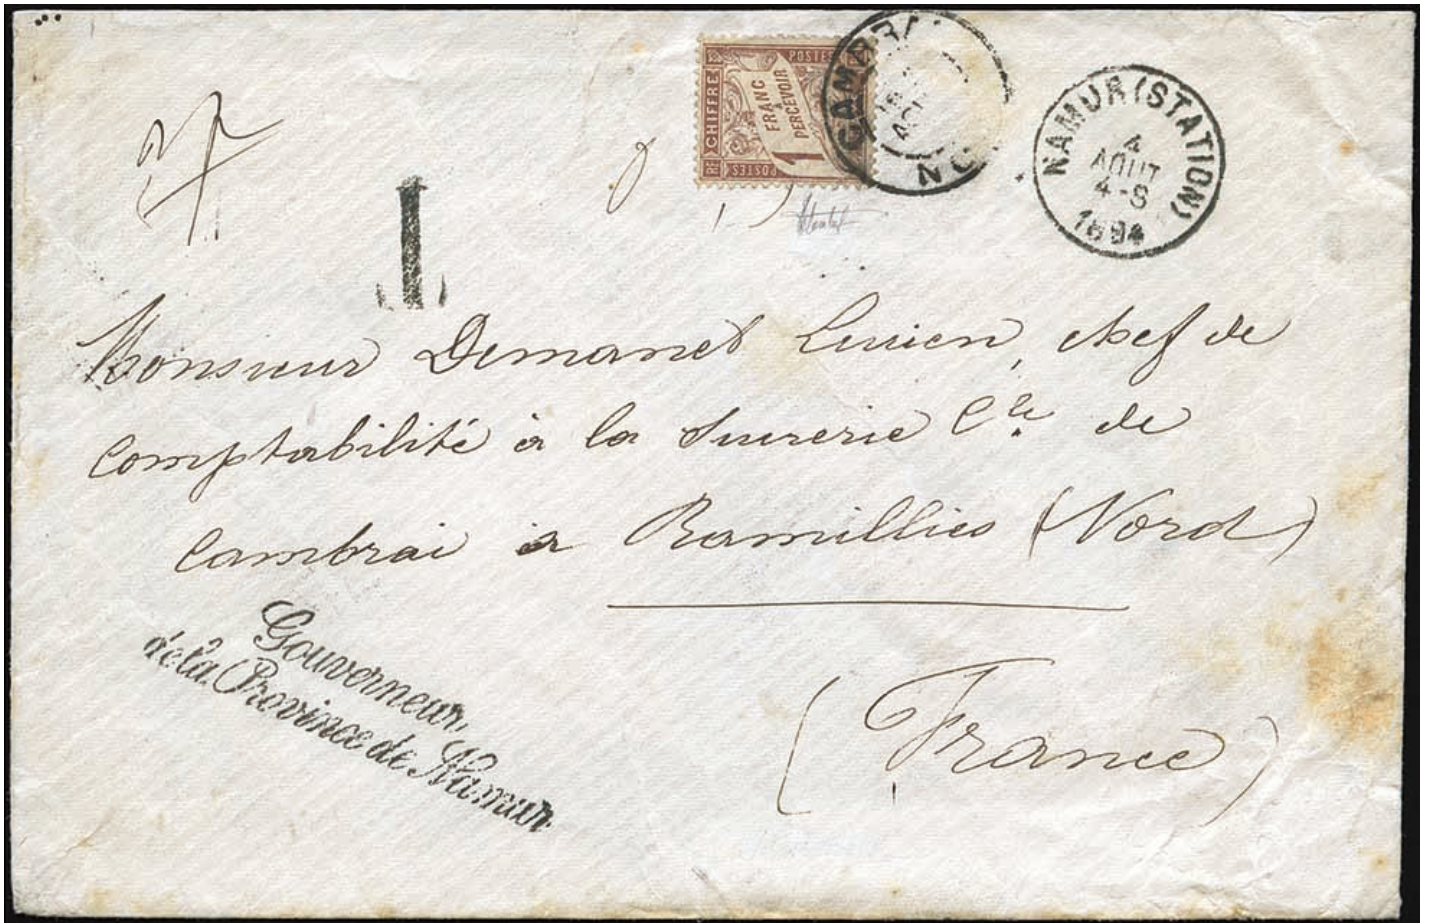 CHIFFRE
POSTES
1 FRANC
À
PERCEVOIR
POSTES
RF
CAMBRAI
NO
NAMUR (STATION)
4
AOUT
4-S
1894
T
Monsieur Demanet Lucien, chef de
comptabilité à la Sucrerie Cle de
Cambrai à Ramillies (Nord)
(France)
Gouverneur
de la Province de Namur